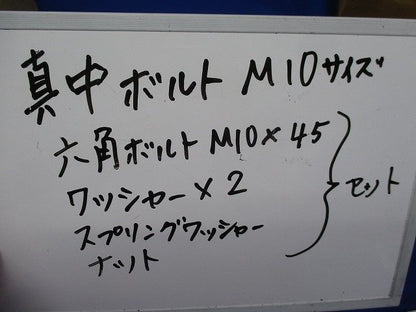 真中ボルト M10サイズ
六角ボルトM10×45
ワッシャー×2
スプリングワッシャー
ナット
セット